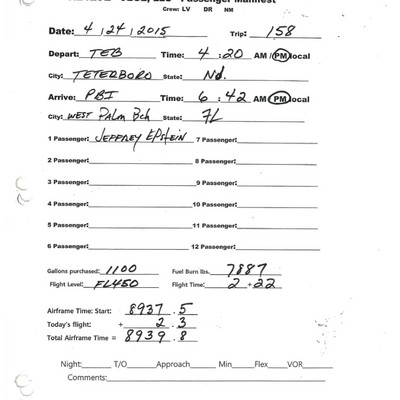 Passenger Manifest
Crew: LV DR NM
Date: 4/24/2015 Trip: 158
Depart: TEB Time: 4:20 AM / PM Local
City: TETERBORO State: NJ.
Arrive: PBI Time: 6:42 AM PM Local
City: WEST PALM BCH State: FL
1 Passenger: JEFFREY EPSTEIN 7 Passenger:
2 Passenger: 8 Passenger:
3 Passenger: 9 Passenger:
4 Passenger: 10 Passenger:
5 Passenger: 11 Passenger:
6 Passenger: 12 Passenger:
Gallons purchased: 1100 Fuel Burn lbs. 7887
Flight Level: FL450 Flight Time: 2 + 22
Airframe Time: Start: 8937.5
Today's flight: + 2.3
Total Airframe Time = 8939.8
Night: T/O Approach Min Flex VOR
Comments: